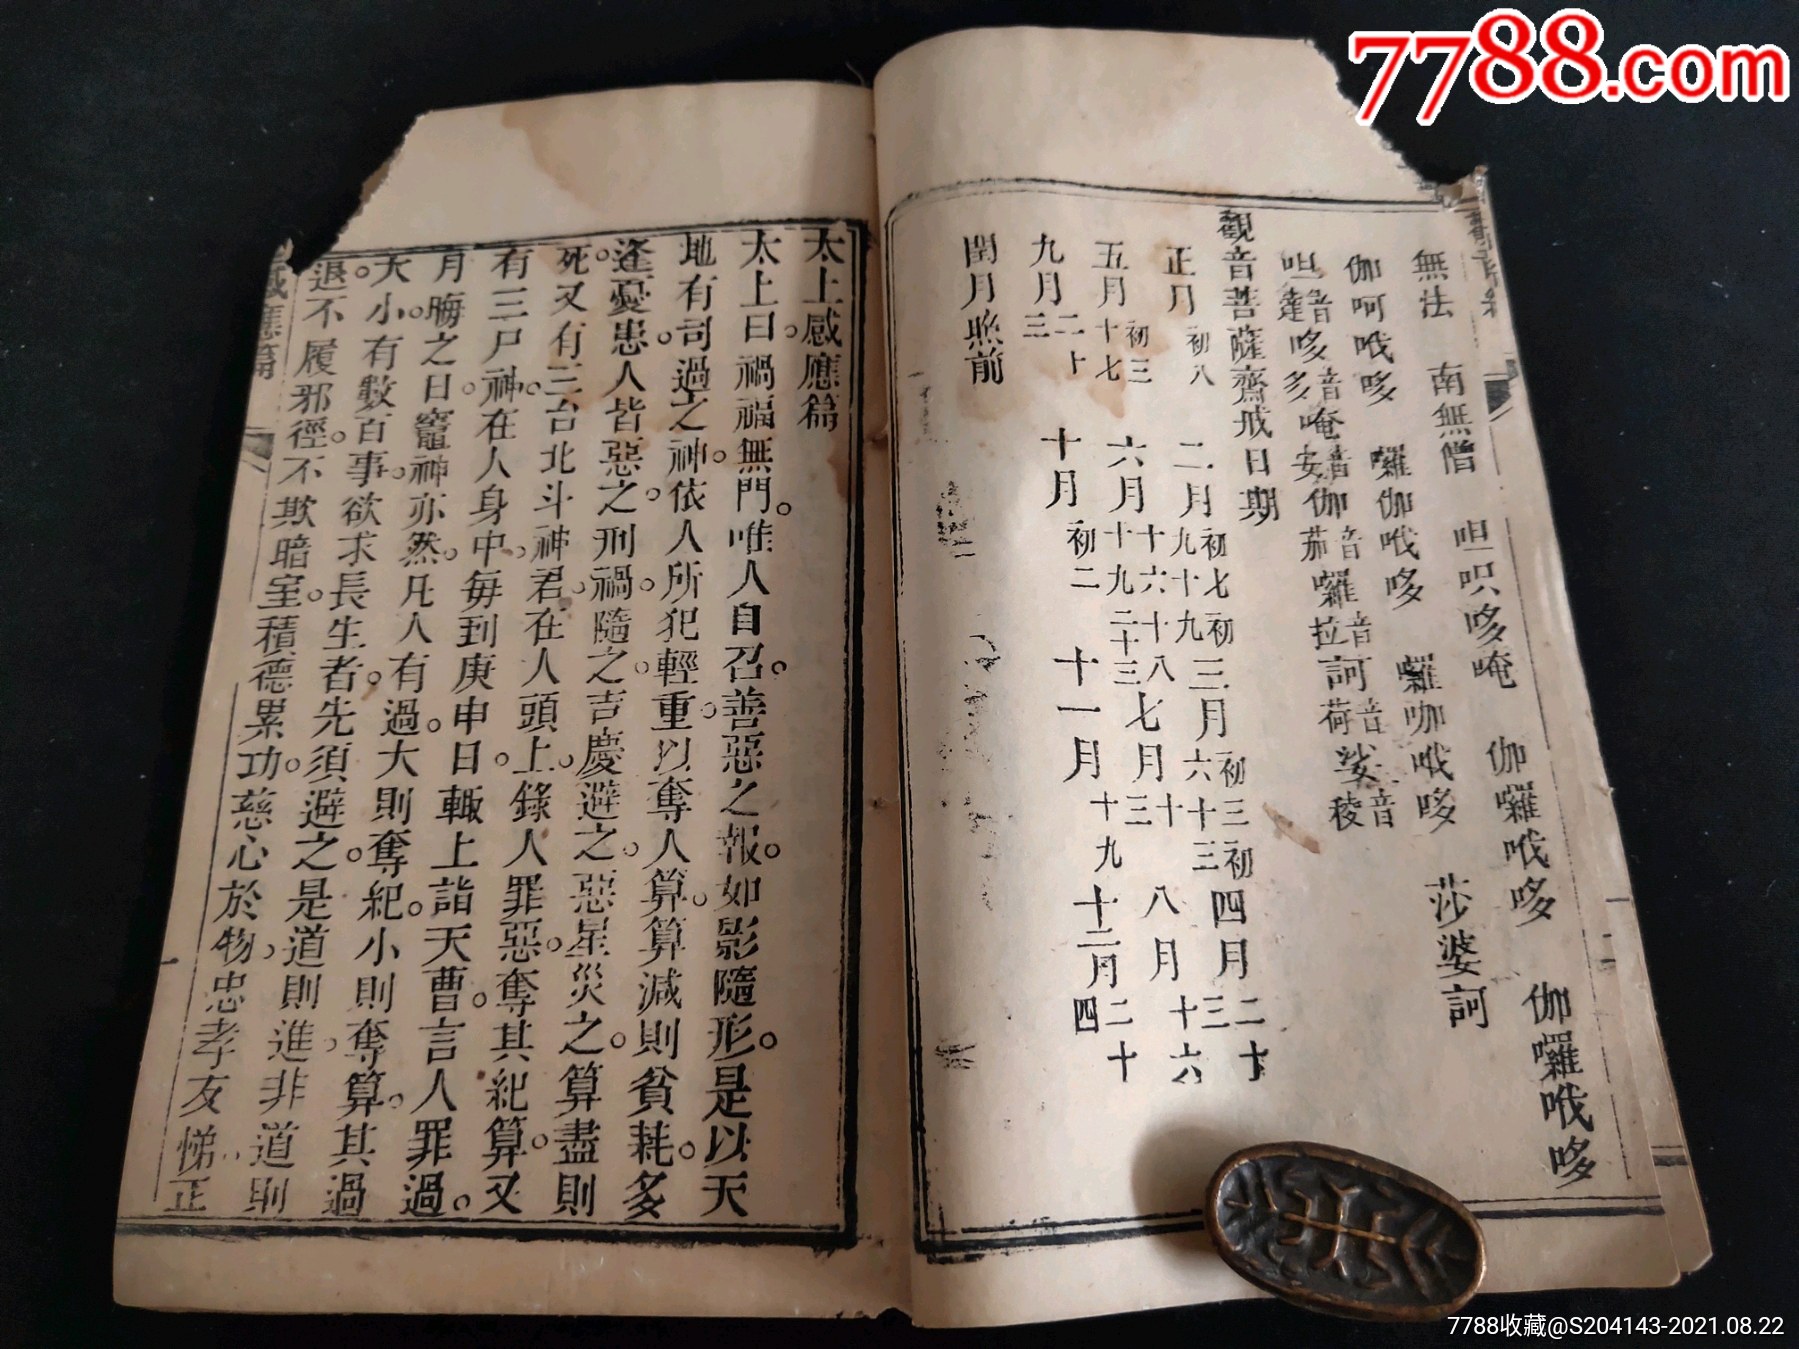 無法　南無僧　呾呮哆唵　伽囉哦哆　伽囉哦哆
伽呵哦哆　囉伽哦哆　囉咖哦哆　莎婆訶
呾音達哆音多唵音安伽音茄囉音拉訶音荷娑音稜
觀音菩薩齋戒日期
正月初八　二月初七初九十九　三月初三初六十三　四月二十三
五月初三十七　六月十六十八十九二十三　七月十三　八月十六
九月二十三　十月初二　十一月十九　十二月二十四
閏月照前
太上感應篇
太上曰。禍福無門。唯人自召。善惡之報。如影隨形。是以天
地有司過之神。依人所犯輕重。以奪人算。算減則貧耗。多
逢憂患。人皆惡之。刑禍隨之。吉慶避之。惡星災之。算盡則
死。又有三台北斗神君。在人頭上。錄人罪惡。奪其紀算。又
有三尸神。在人身中。每到庚申日。輒上詣天曹。言人罪過。
月晦之日。竈神亦然。凡人有過。大則奪紀。小則奪算。其過
大小。有數百事。欲求長生者。先須避之。是道則進。非道則
退。不履邪徑。不欺暗室。積德累功。慈心於物。忠孝友悌。正
感應篇
7788.com
7788收藏@S204143-2021.08.22